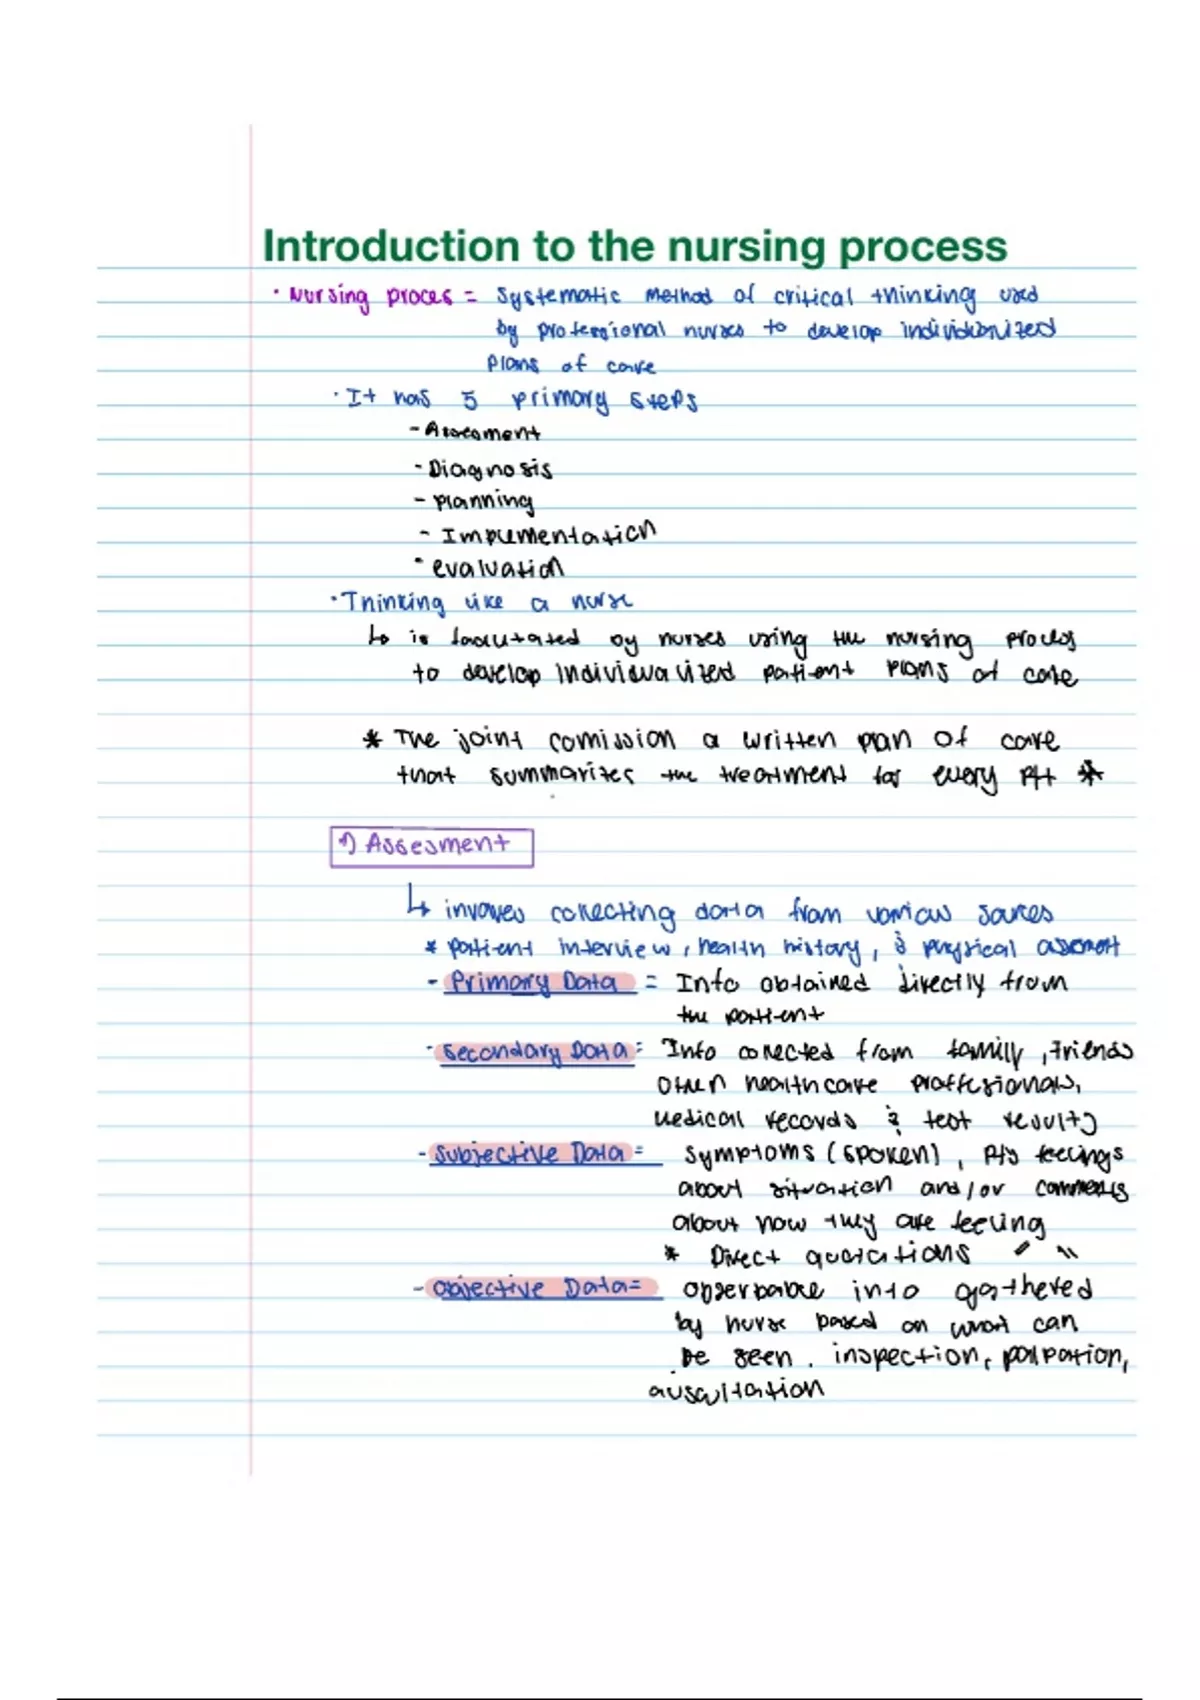 Introduction to the nursing process
· Nursing proces = Systematic method of critical thinking used
by professional nurses to develop individualized
plans of care
· It has 5 primary steps
- Assesment
- Diagnosis
- Planning
- Implementation
- evaluation
· Thinking like a nurse
↳ is facilitated by nurses using the nursing process
to develop individualized patient plans of care
* The joint comission a written plan of care
that summarizes the treatment for every pt *
1) Assesment
↳ involves collecting data from various sources
* patient interview, health history, & physical assesment
- Primary Data = Info obtained directly from
the patient
- Secondary Data = Info collected from family, friends
other healthcare proffesionals,
medical records & test results
- Subjective Data = symptoms (spoken), pts feelings
about situation and/or comments
about how they are feeling
* Direct quotations " "
- Objective Data = observable info gathered
by nurse based on what can
be seen. inspection, palpation,
auscultation